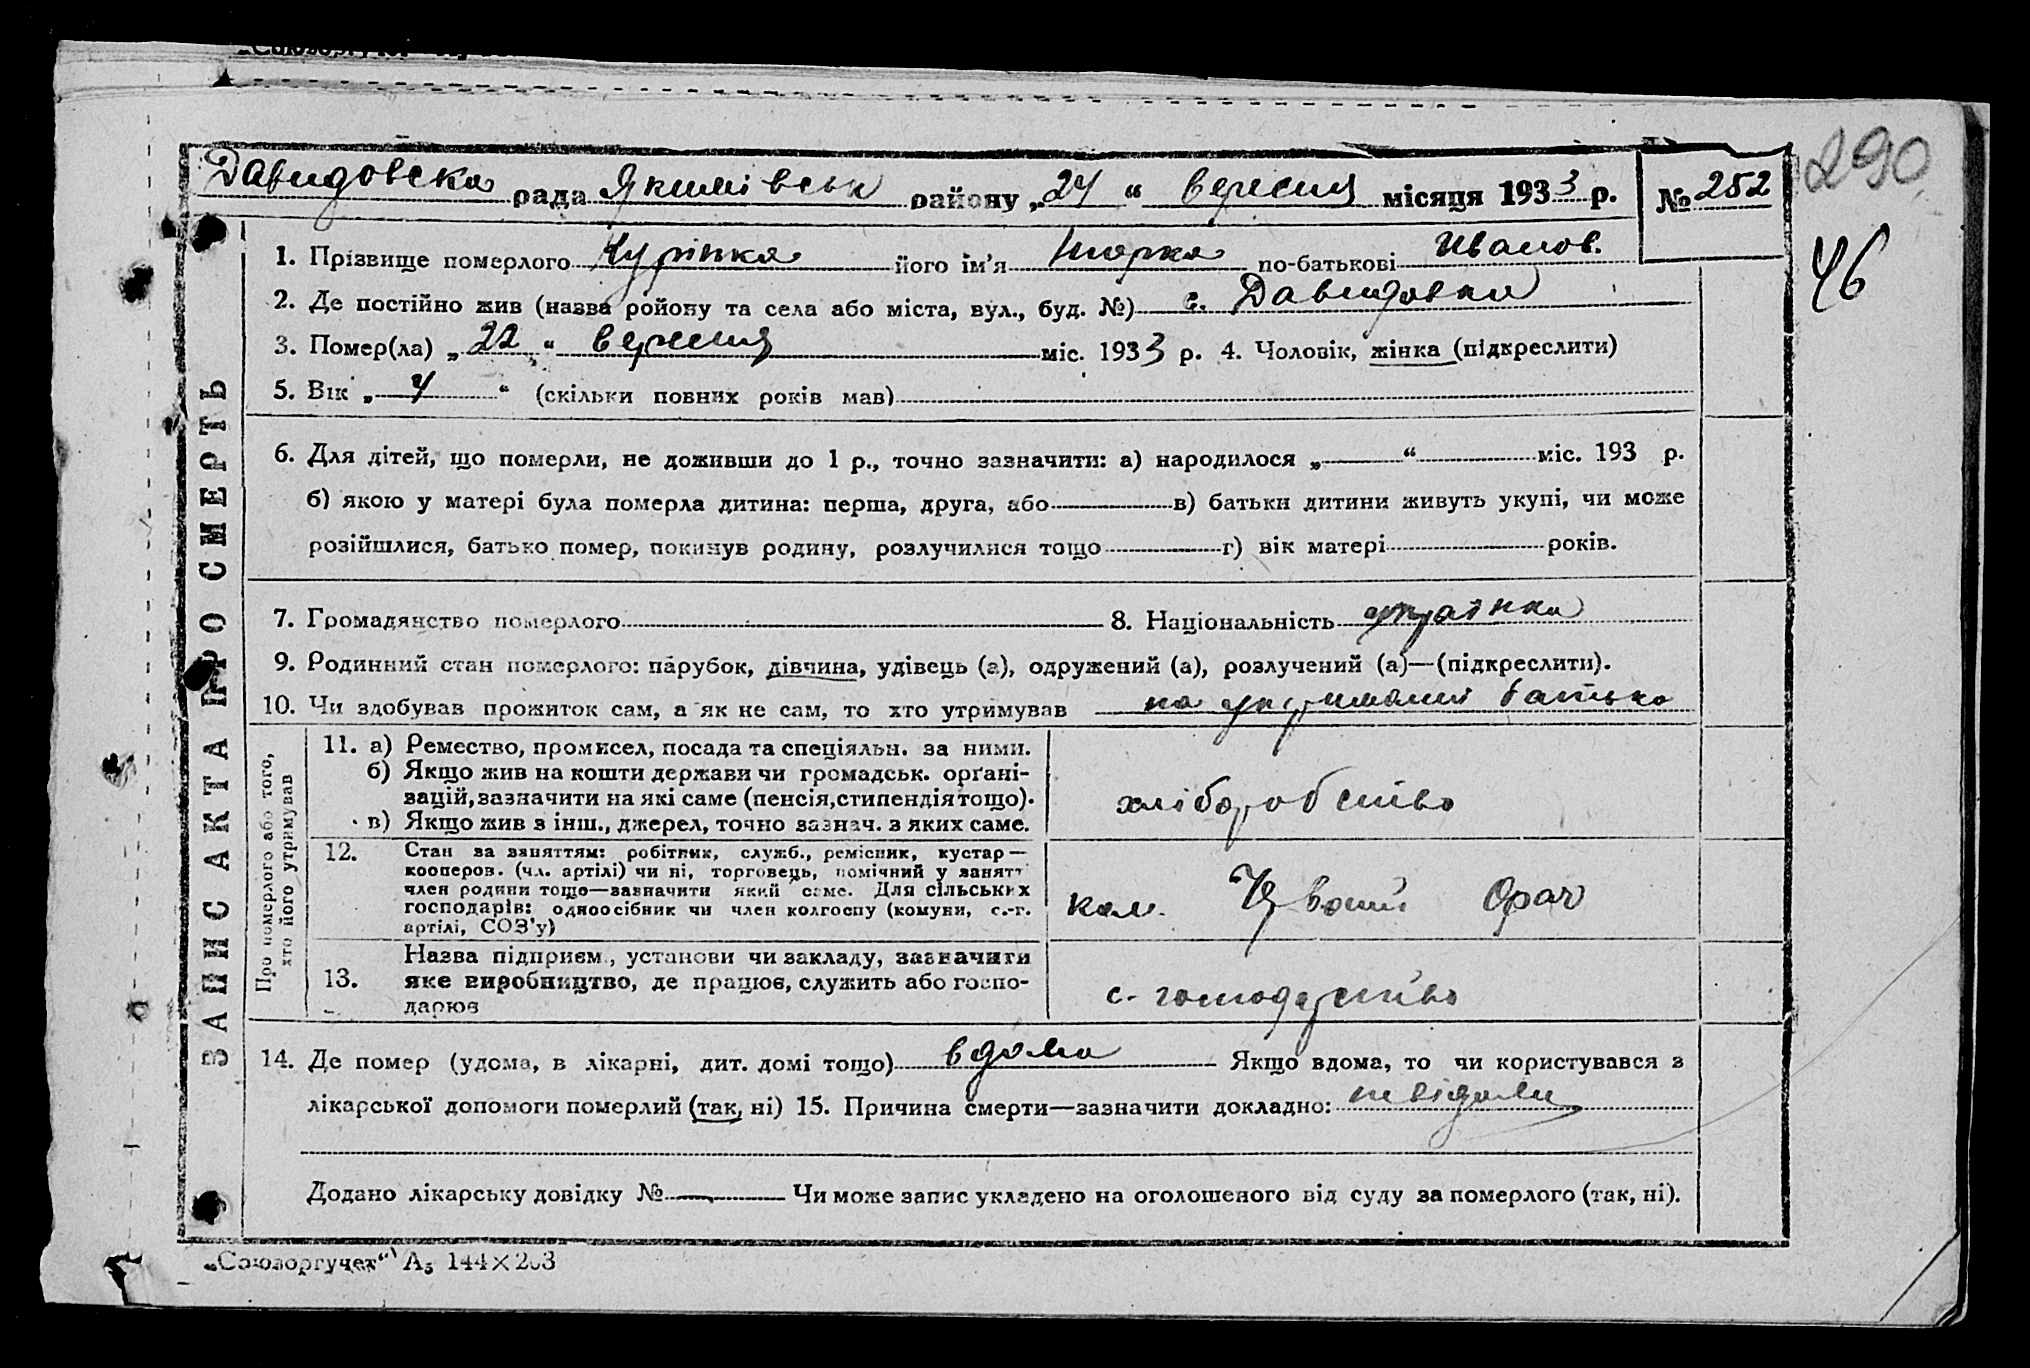 290
Давидовска рада Якимівськ району „24“ вересня місяця 1933 р. № 252
46
ЗАПИС АКТА ПРО СМЕРТЬ
1. Прізвище померлого Курінка його ім'я по-батькові Иванов.
2. Де постійно жив (назва ройону та села або міста, вул., буд. №) с. Давидовка
3. Помер(ла) „22“ вересня міс. 1933 р. 4. Чоловік, жінка (підкреслити)
5. Вік „4“ (скільки повних років мав)
6. Для дітей, що померли, не доживши до 1 р., точно зазначити: а) народилося „ “ міс. 193 р.
б) якою у матері була померла дитина: перша, друга, або в) батьки дитини живуть укупі, чи може
розійшлися, батько помер, покинув родину, розлучилися тощо г) вік матері років.
7. Громадянство померлого 8. Національність українка
9. Родинний стан померлого: парубок, дівчина, удівець (а), одружений (а), розлучений (а)—(підкреслити).
10. Чи здобував прожиток сам, а як не сам, то хто утримував на утриманні батька
Про померлого або того,
хто його утримував
11. а) Ремество, промисел, посада та спеціяльн. за ними.
б) Якщо жив на кошти держави чи громадськ. орґані-
зацій, зазначити на які саме (пенсія, стипендія тощо).
в) Якщо жив з інш., джерел, точно зазнач. з яких саме.
хліборобство
12. Стан за заняттям: робітник, служб., ремісник, кустар—
кооперов. (чл. артілі) чи ні, торговець, помічний у занятт
член родини тощо—зазначити який саме. Для сільських
господарів: одноосібник чи член колгоспу (комуни, с.-г.
артілі, СОЗ'у)
кол. Червоний Орач
13. Назва підприєм., установи чи закладу, зазначити
яке виробництво, де працює, служить або госпо-
дарює
с-господарство
14. Де помер (удома, в лікарні, дит. домі тощо) вдома Якщо вдома, то чи користувався з
лікарської допомоги померлий (так, ні) 15. Причина смерти—зазначити докладно: невідоми
Додано лікарську довідку № Чи може запис укладено на оголошеного від суду за померлого (так, ні).
„Союзоргучет“ А5 144×203